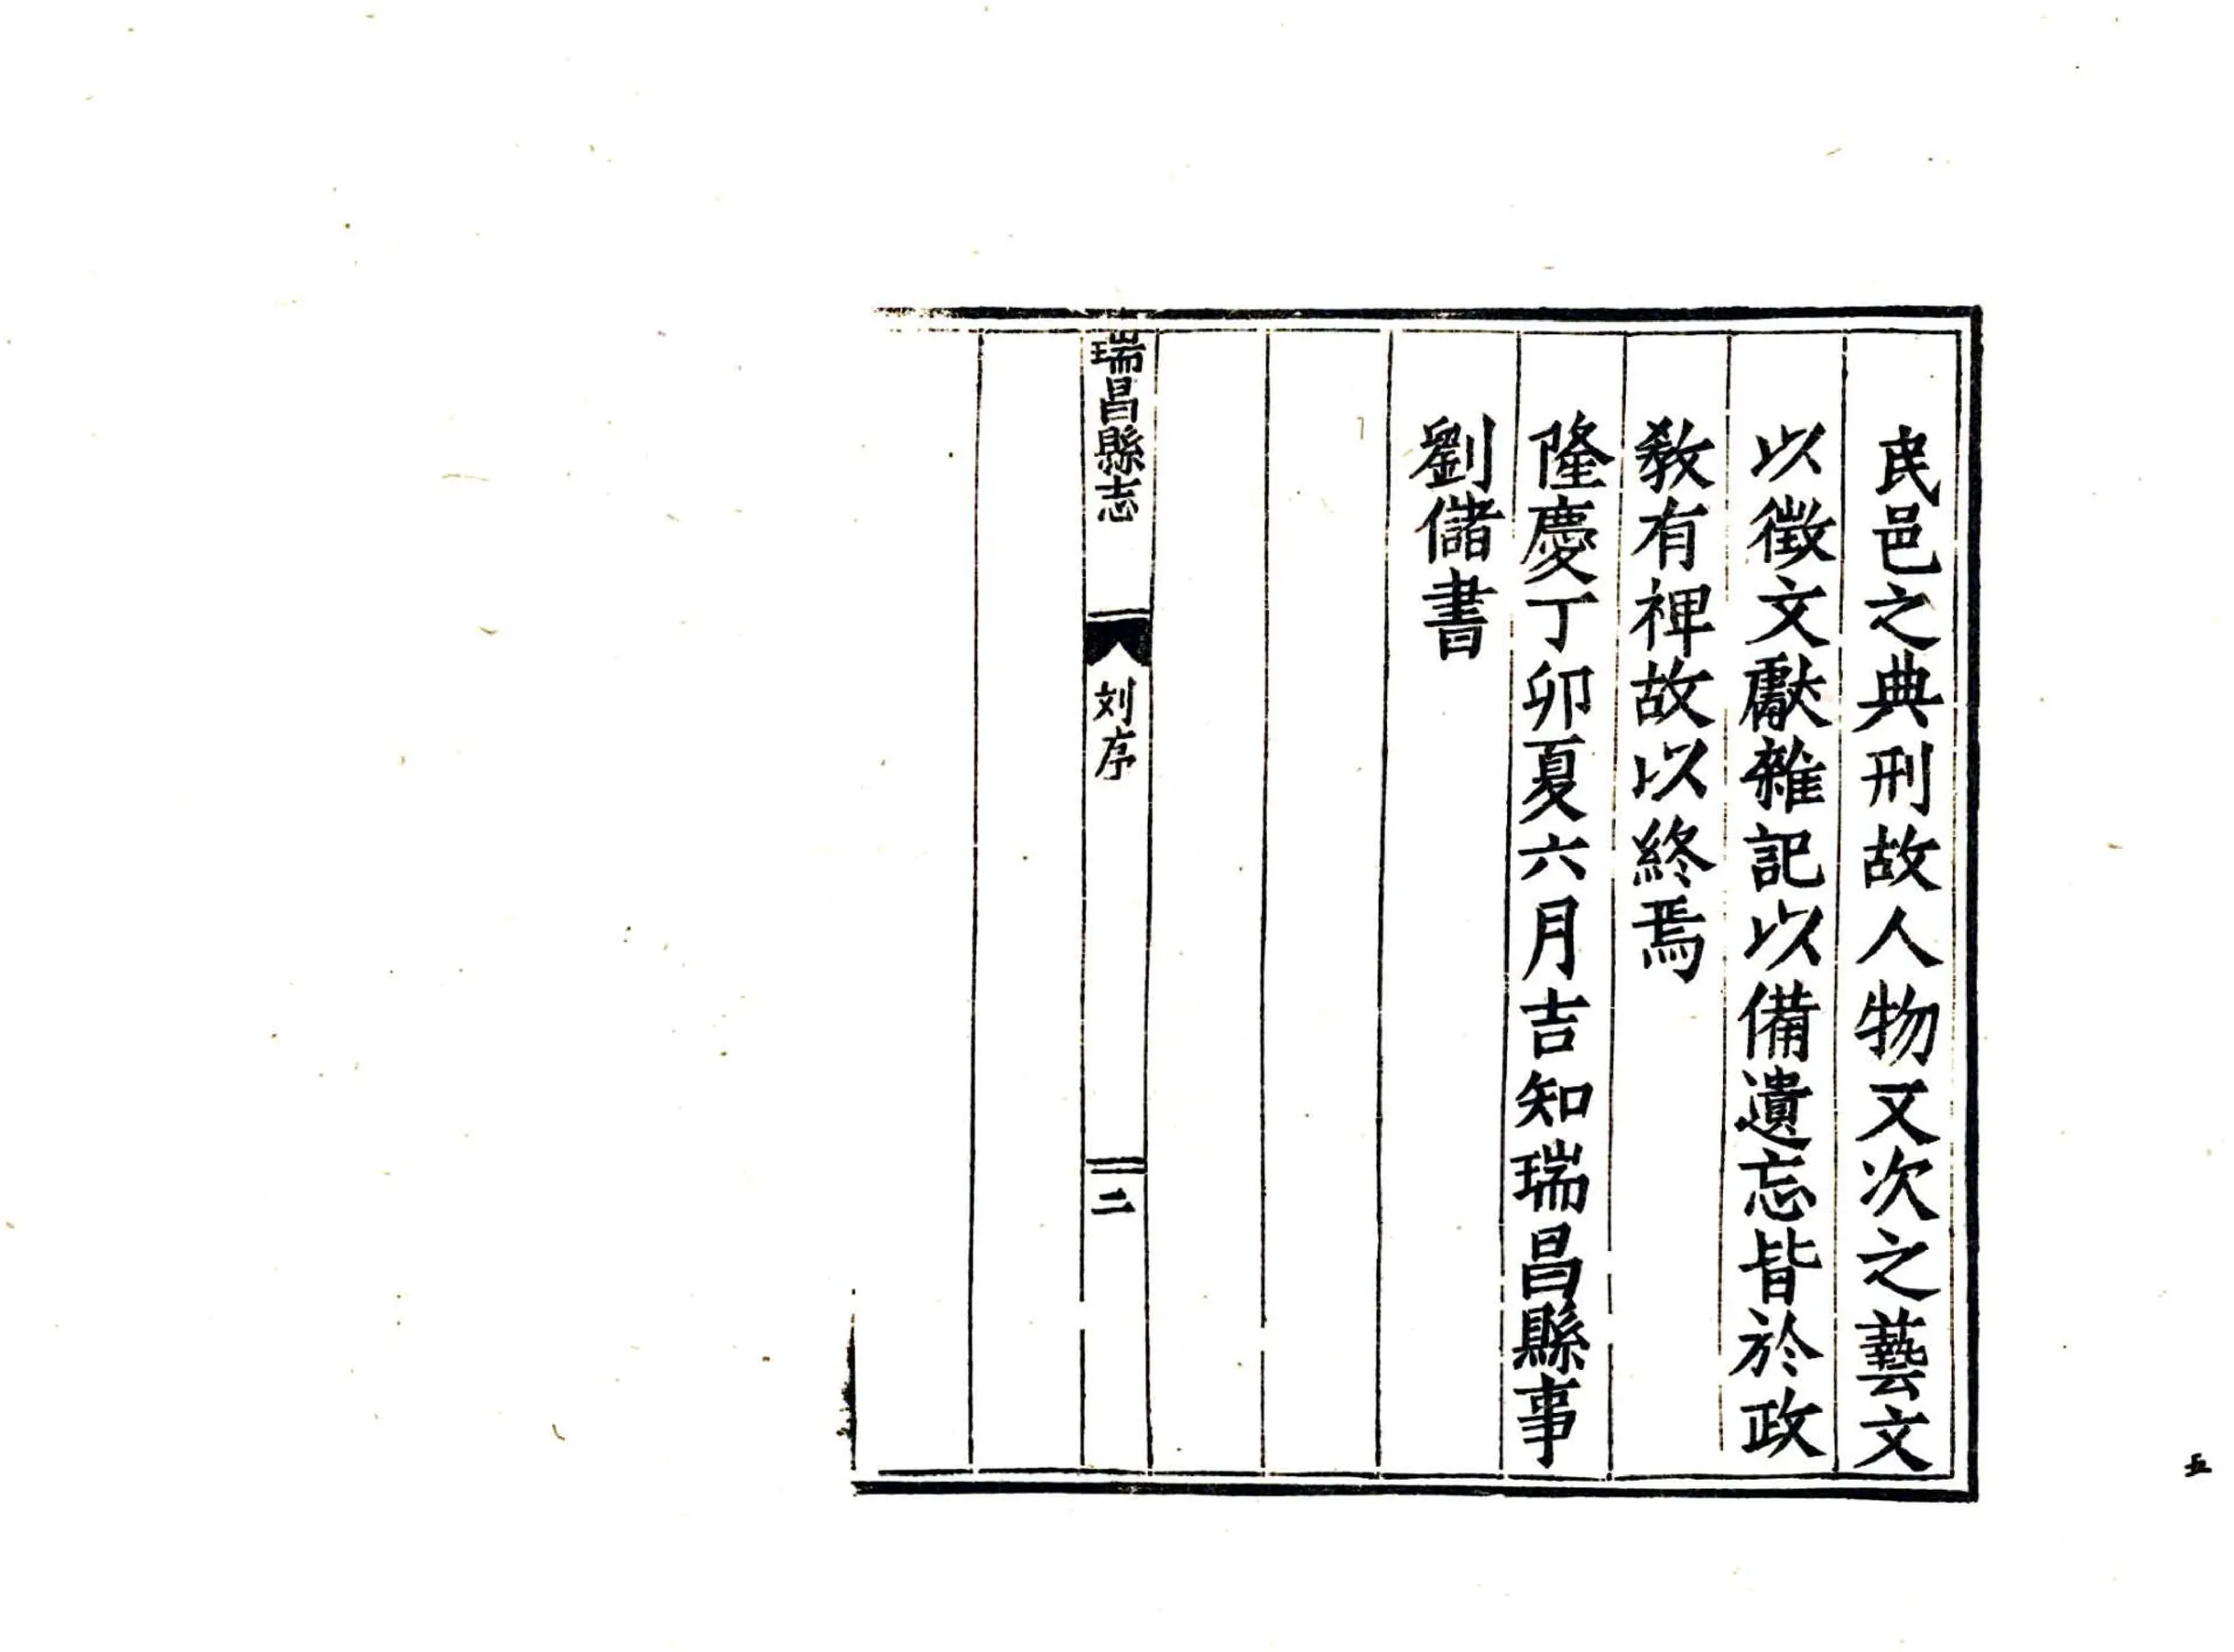 民邑之典刑故人物又次之藝文
以徵文獻雜記以備遺忘皆於政
教有裨故以終焉
隆慶丁卯夏六月吉知瑞昌縣事
劉儲書
瑞昌縣志
刘序
二
五